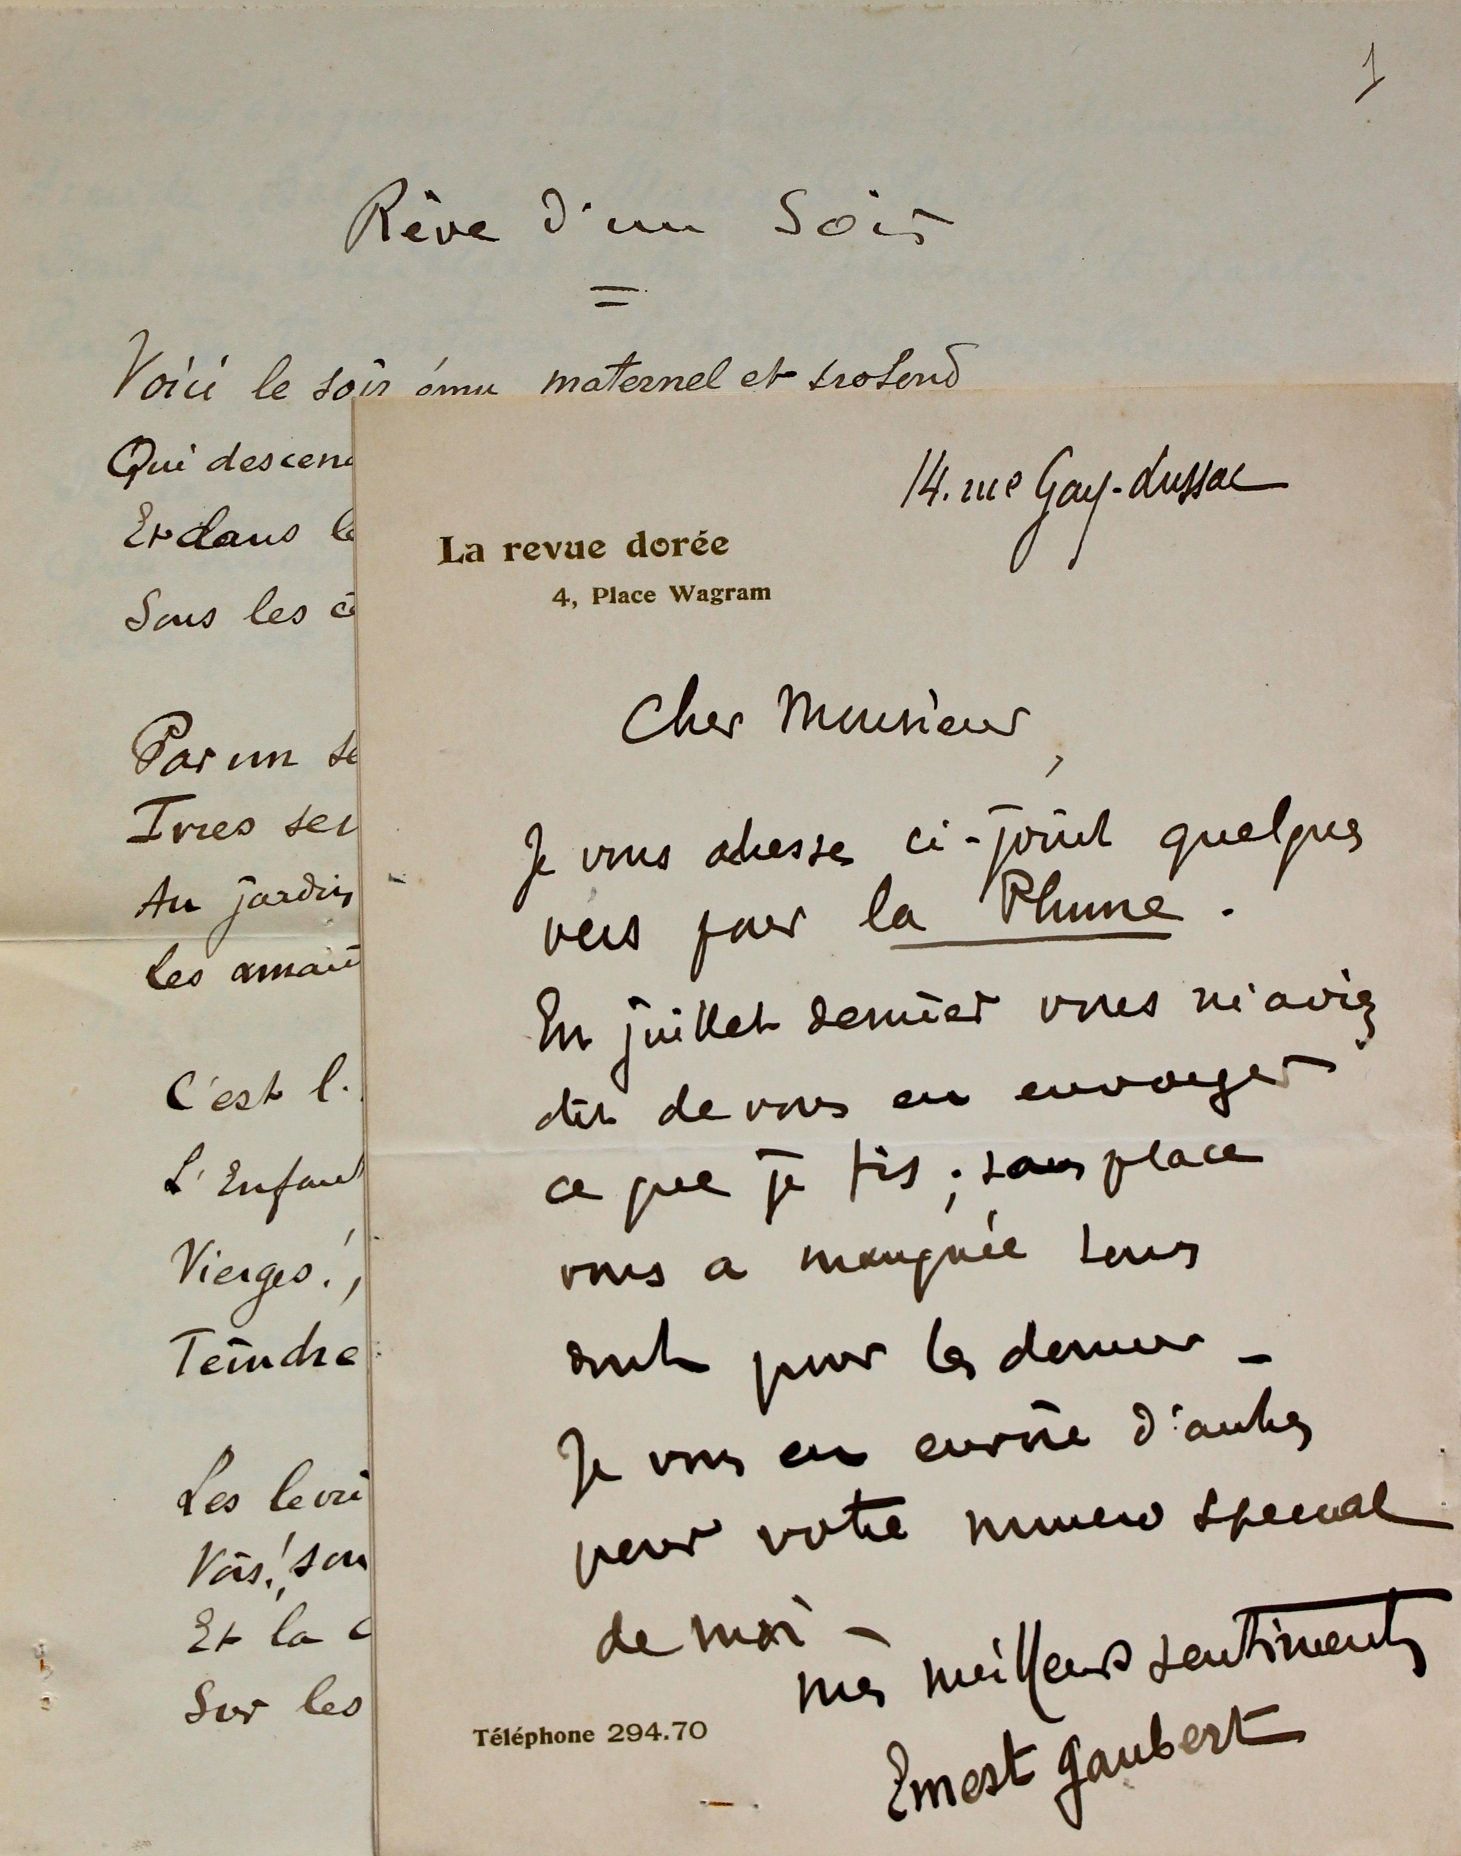 1
Rêve d'un Soir
Voici le soir ému maternel et profond
Qui descen
Et dans le
Sous les
Par un
Ivres
Au jardin
Les amant
C'est l'
L'Enfant
Vierges!,
Teindre
Les
Vois!, son
Et la
Sur les
14. rue Gay-Lussac
La revue dorée
4, Place Wagram
Cher Monsieur,
Je vous adresse ci-joint quelques
vers pour la Plume.
En juillet dernier vous m'aviez
dit de vous en envoyer
ce que je fis ; sans place
vous a manquée sans
doute pour les donner –
Je vous en envoie d'autres
pour votre numero special
de mai –
mes meilleurs sentiments
Ernest Gaubert
Téléphone 294.70